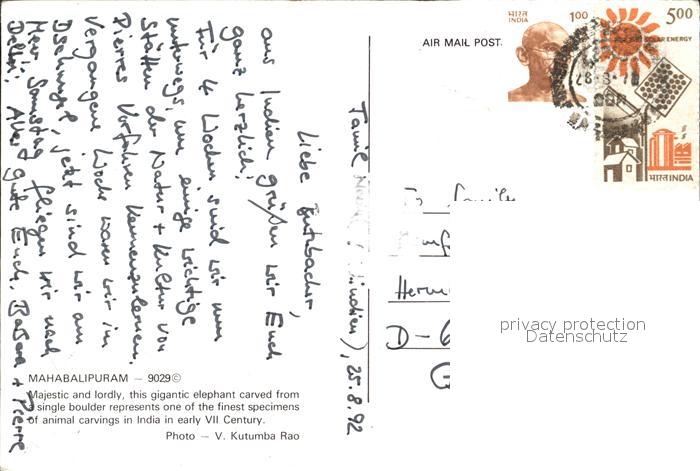 Tamil
indien), 25.8.92
Liebe Butzbacher,
aus Indien grüßen wir Euch
ganz herzlich!
Für 4 Wochen sind wir nun
unterwegs, um einige wichtige
Stätten der Natur + Kultur von
Pierres Vorfahren kennenzulernen.
Vergangene Woche waren wir im
Dschungel, jetzt sind wir am
Meer. Samstag fliegen wir nach
Delhi. Alles Gute Euch, Barbara + Pierre
MAHABALIPURAM — 9029©
Majestic and lordly, this gigantic elephant carved from
a single boulder represents one of the finest specimens
of animal carvings in India in early VII Century.
Photo — V. Kutumba Rao
AIR MAIL POST.
भारत
INDIA
1.00
5.00
SOLAR ENERGY
भारत INDIA
Herm
D-6
privacy protection
Datenschutz